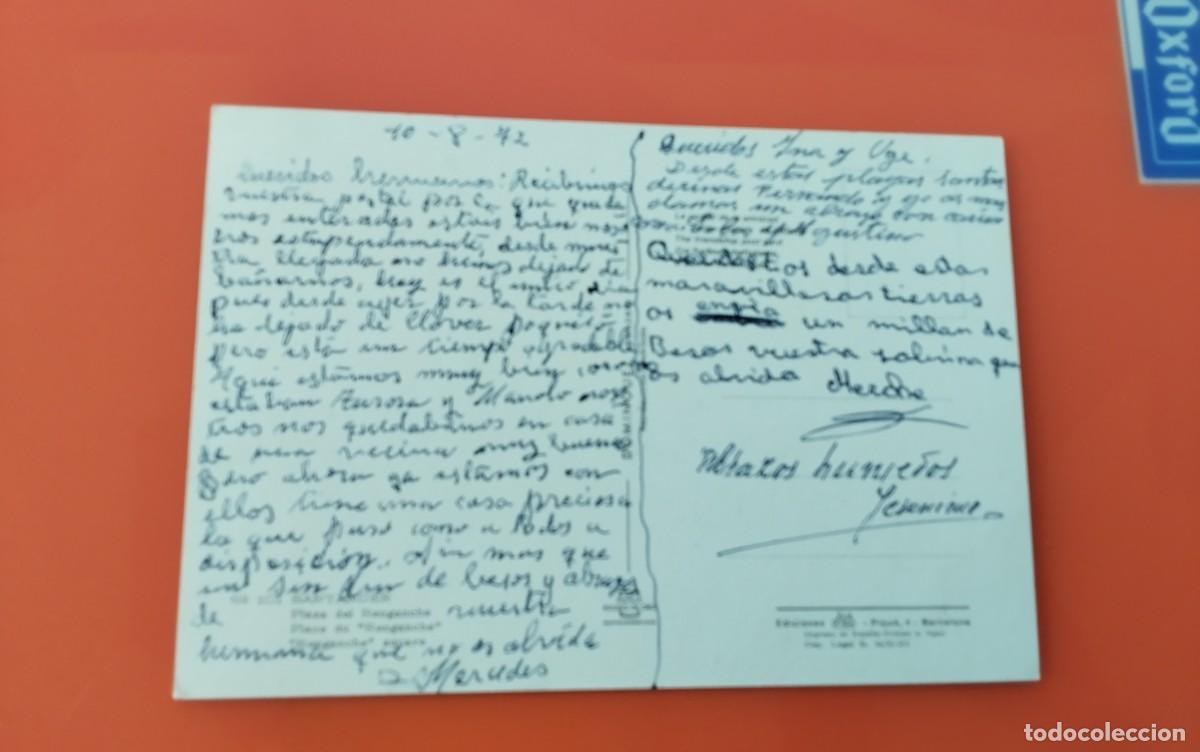 10-8-72
Queridos hermanos: Recibimos
vuestra postal por la que queda
mos enterados estais bien noso
tros estupendamente, desde nues
tra llegada no hemos dejado de
bañarnos, hoy es el unico dia
pues desde ayer por la tarde no
ha dejado de llover
pero está un tiempo agradable
Aqui estamos muy bien
estaban Aurora y Mando noso
tros nos quedabamos en casa
de una vecina muy buena
Pero ahora ya estamos con
ellos tiene una casa preciosa
la que puso como a todos a
disposición. Sin mas que
un sin fin de besos y abrazos
de vuestra
hermana que no os olvida
Mercedes
SANTANDER
Plaza del
Place du
Queridos Ina y Uge.
Desde estas playas santan
derinas Fernando y yo os man
damos un abrazo con cariño
os desde estas
maravillosas tierras
os envia un millan de
Besos vuestra sobrina que
os olvida Merche
Abrazos humedos
Jeronimo
Ediciones - Piqué, 4 - Barcelona
Oxford
todocoleccion